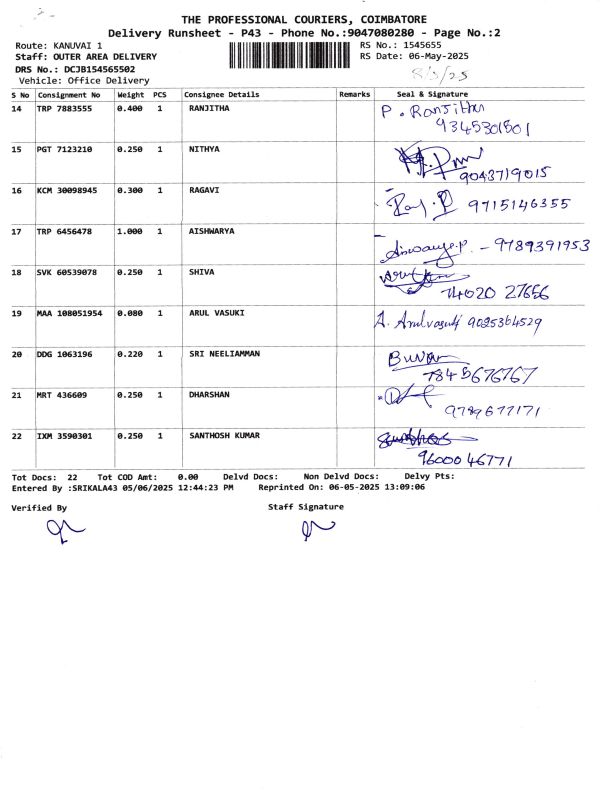 2-
THE PROFESSIONAL COURIERS, COIMBATORE
Delivery Runsheet - P43 - Phone No.:9047080280 - Page No.:2
Route: KANUVAI 1 RS No.: 1545655
Staff: OUTER AREA DELIVERY RS Date: 06-May-2025
DRS No.: DCJB154565502
Vehicle: Office Delivery
S No Consignment No Weight PCS Consignee Details Remarks Seal & Signature
14 TRP 7883555 0.400 1 RANJITHA P. Ranjitha
9345301801
15 PGT 7123210 0.250 1 NITHYA
9043719015
16 KCM 30098945 0.300 1 RAGAVI 9715146355
17 TRP 6456478 1.000 1 AISHWARYA
Aiswarya.P. - 9789391953
18 SVK 60539078 0.250 1 SHIVA
74020 27656
19 MAA 108051954 0.080 1 ARUL VASUKI A. Arulvasuki 9025364529
20 DDG 1063196 0.220 1 SRI NEELIAMMAN
7845676767
21 MRT 436609 0.250 1 DHARSHAN
9789677171
22 IXM 3590301 0.250 1 SANTHOSH KUMAR
9600046771
Tot Docs: 22 Tot COD Amt: 0.00 Delvd Docs: Non Delvd Docs: Delvy Pts:
Entered By :SRIKALA43 05/06/2025 12:44:23 PM Reprinted On: 06-05-2025 13:09:06
Verified By Staff Signature